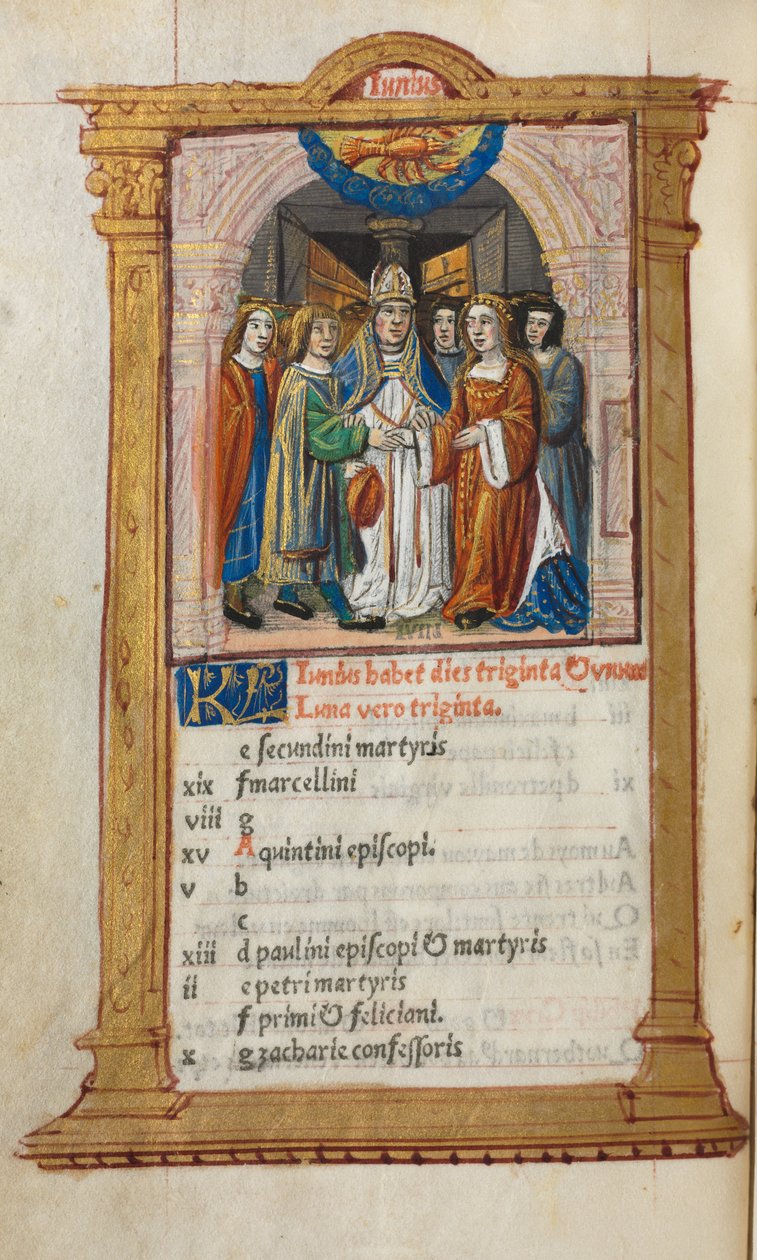 Iunius
KL Iunius habet dies triginta & unum
Luna vero triginta.
e secundini martyris
xix f marcellini
viii g
xv A quintini episcopi.
v b
c
xiii d paulini episcopi & martyris
ii e petri martyris
f primi & feliciani.
x g zacharie confessoris